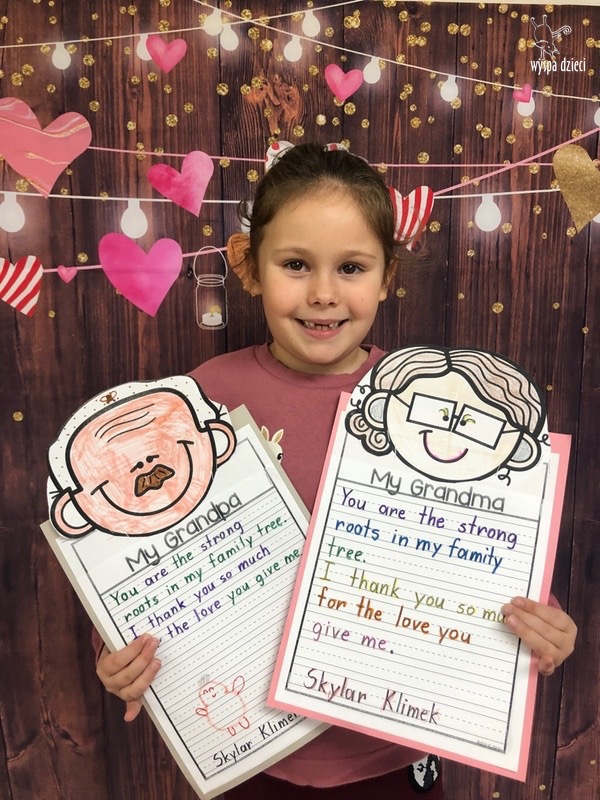 wyspa dzieci
My Grandpa
You are the strong
roots in my family tree.
I thank you so much
the love you give me
Skylar Klimek
My Grandma
You are the strong
roots in my family
tree.
I thank you so mu
for the love you
give me.
Skylar Klimek